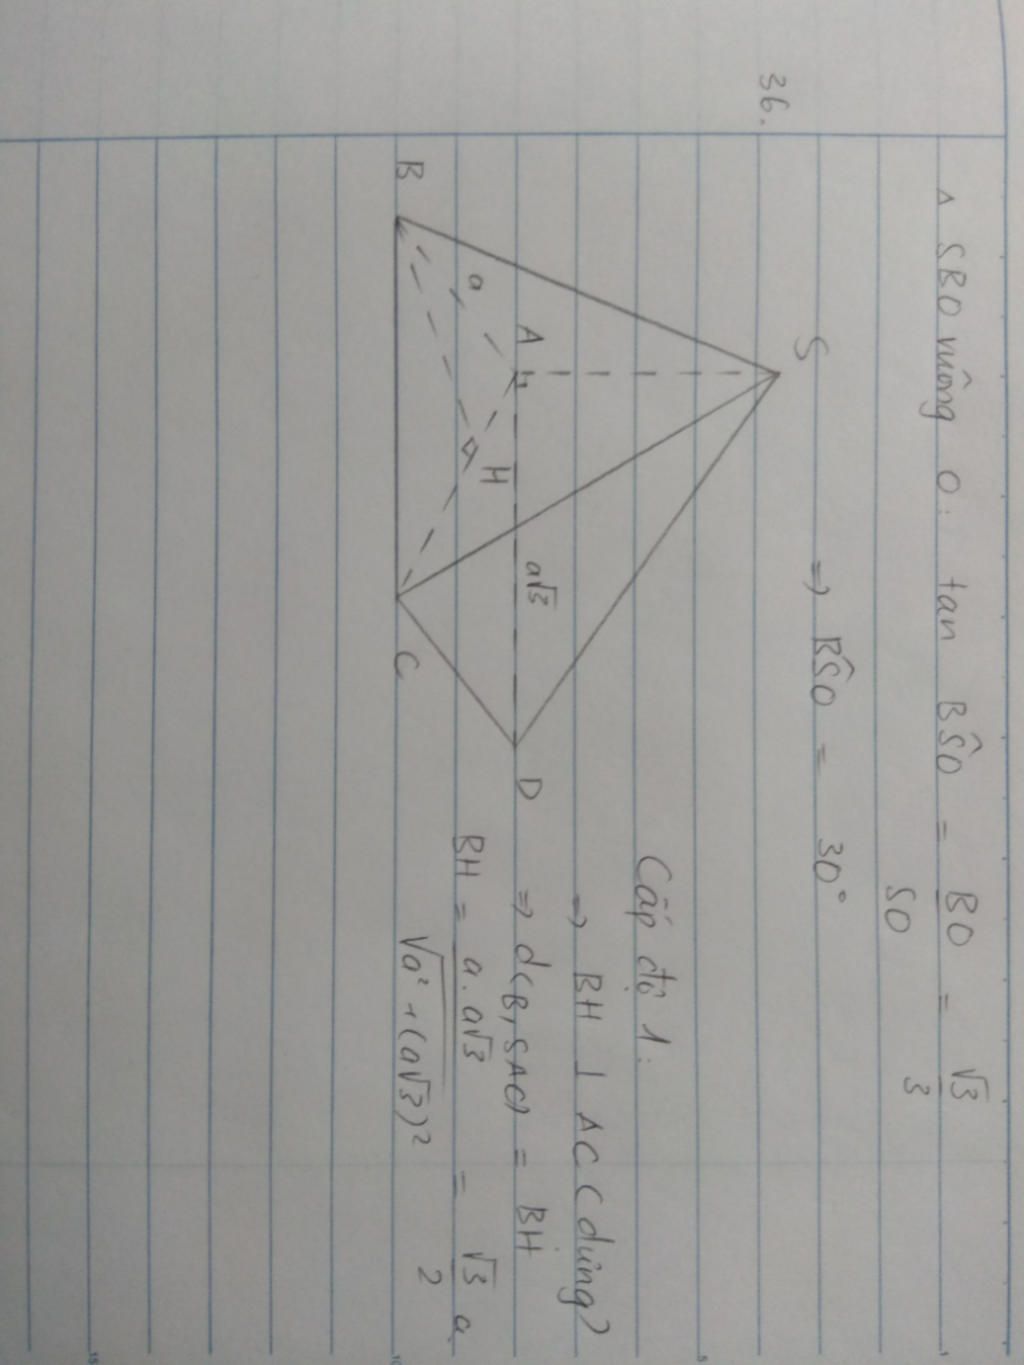 Δ SBO vuông O: tan BŜO = BO/SO = √3/3
⇒ BŜO = 30°
36.
S
A
B
C
D
H
a
a√3
Cấp độ 1:
⇒ BH ⊥ AC (dựng)
⇒ d(B, SAC) = BH
BH = a.a√3/√a² + (a√3)² = √3/2 a